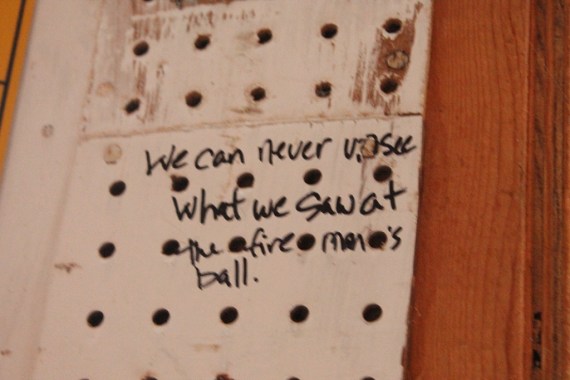 We can never unsee
what we saw at
the fire man's
ball.